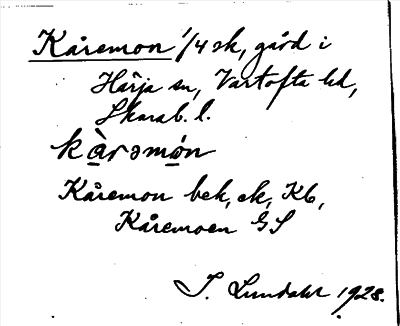 Kåremon 1/4 sk, gård i
Härja sn, Vartofta hd,
Skarab. l.
kàrəmón
Kåremon bek, ek, Kb,
Kåremoen GS
I. Lundahl 1928.